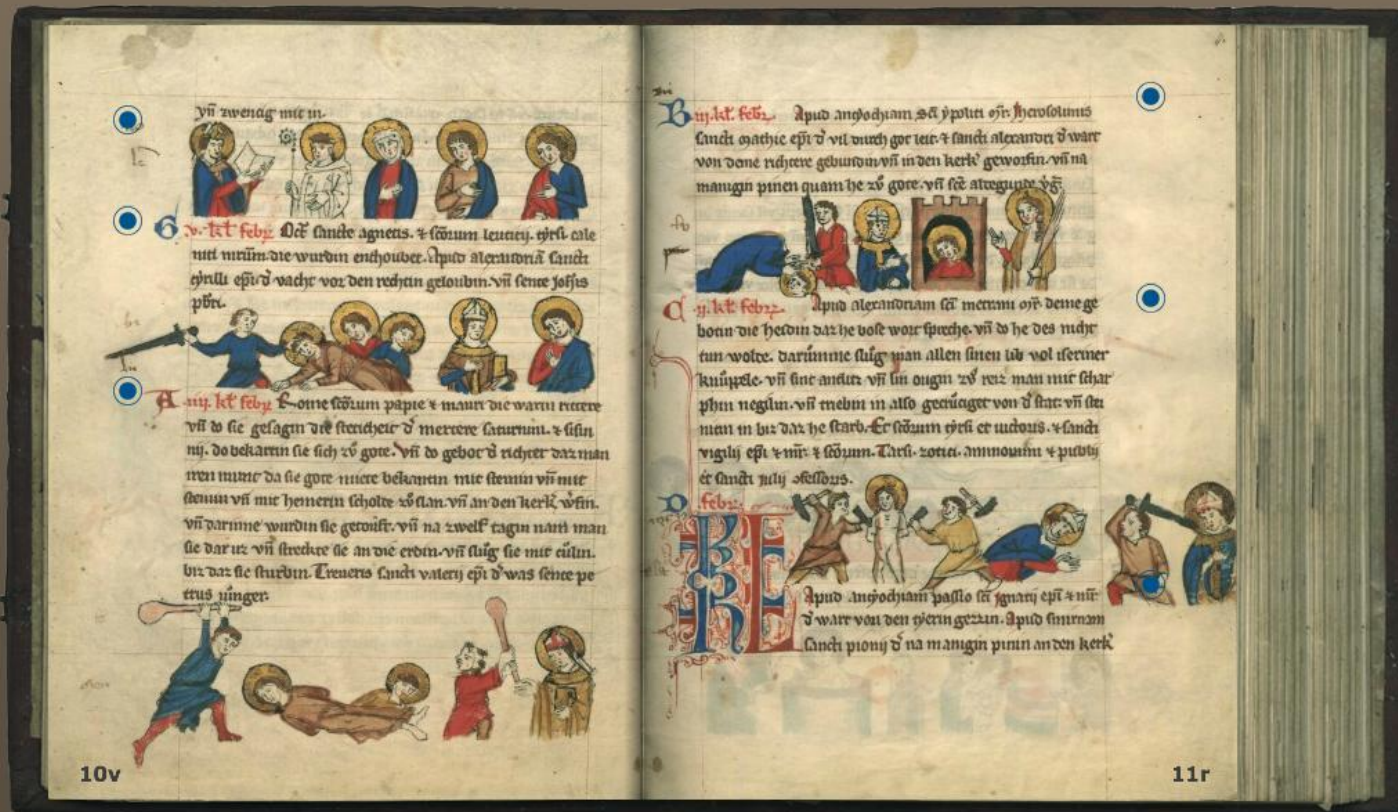 vn̄ zwenzig mit in.
G v. kł. febr̄. Oct̄ sancte agnetis. ⁊ sc̄orum leucicij. tẏrsi. cale
nici mr̄rum. die wurdin enthoubet. Apud alexandriā sancti
cẏrilli ep̄i. d̓ vacht vor den rechtin geloubin. vn̄ sente joh̄is
pb̄ri.
A iiij. kł. febr̄ Rome sc̄orum papie ⁊ mauri die warin rittere
vn̄ do sie gesagin die steticheit d̓ mertere saturnini. ⁊ sisin
nij. do bekartin sie sich zů gote. Vn̄ do gebot d̓ richter daz man
iren munt da sie gote mitte bekantin mit steinin vn̄ mit
steinin vn̄ mit hemerin scholte zůslan. vn̄ an den kerk̓ w̓fin.
vn̄ darinne wurdin sie getouft. vn̄ na zwelf tagin nam man
sie dar uz vn̄ streckte sie an die erdin. vn̄ slůg sie mit cůlin.
biz daz sie sturbin. Treueris sancti valerij ep̄i d̓ was sente pe
trus iůnger.
B iij. kł. febr̄. Apud anthẏochiam sc̄i ẏpoliti mr̄. Jherosolimis
sancti mathie ep̄i d̓ vil durch got leit. ⁊ sancti alexandri d̓ wart
von deme richtere gebundin vn̄ in den kerk̓ geworfin. vn̄ na
manigin pinen quam he zů gote. vn̄ sc̄e aldegundis v̓g̓.
C ij. kł. febr̄. Apud alexandriam sc̄i metrani mr̄. deme ge
botin die heidin daz he bose wort spreche. vn̄ do he des nicht
tun wolte. darůmme slůg man allen sinen lib vol iserner
knůppele. vn̄ sint antlitz vn̄ sin ougin zů reiz man mit schar
phin negilin. vn̄ triebin in also gecrůciget von d̓ stat. vn̄ stei
nten in biz daz he starb. Et sc̄orum tẏrsi et victoris. ⁊ sancti
vigilij ep̄i ⁊ mr̄. ⁊ sc̄orum. Tarsi. zotici. ammonini ⁊ publij
et sancti julij ꝯfessoris.
D febr̄.
KL
Apud anthẏochiam passio sc̄i ignatij ep̄i ⁊ mr̄
d̓ wart von den tẏerin gezzin. Apud smirnam
sancti pionij d̓ na manigin pinin an den kerk̓
10v
11r